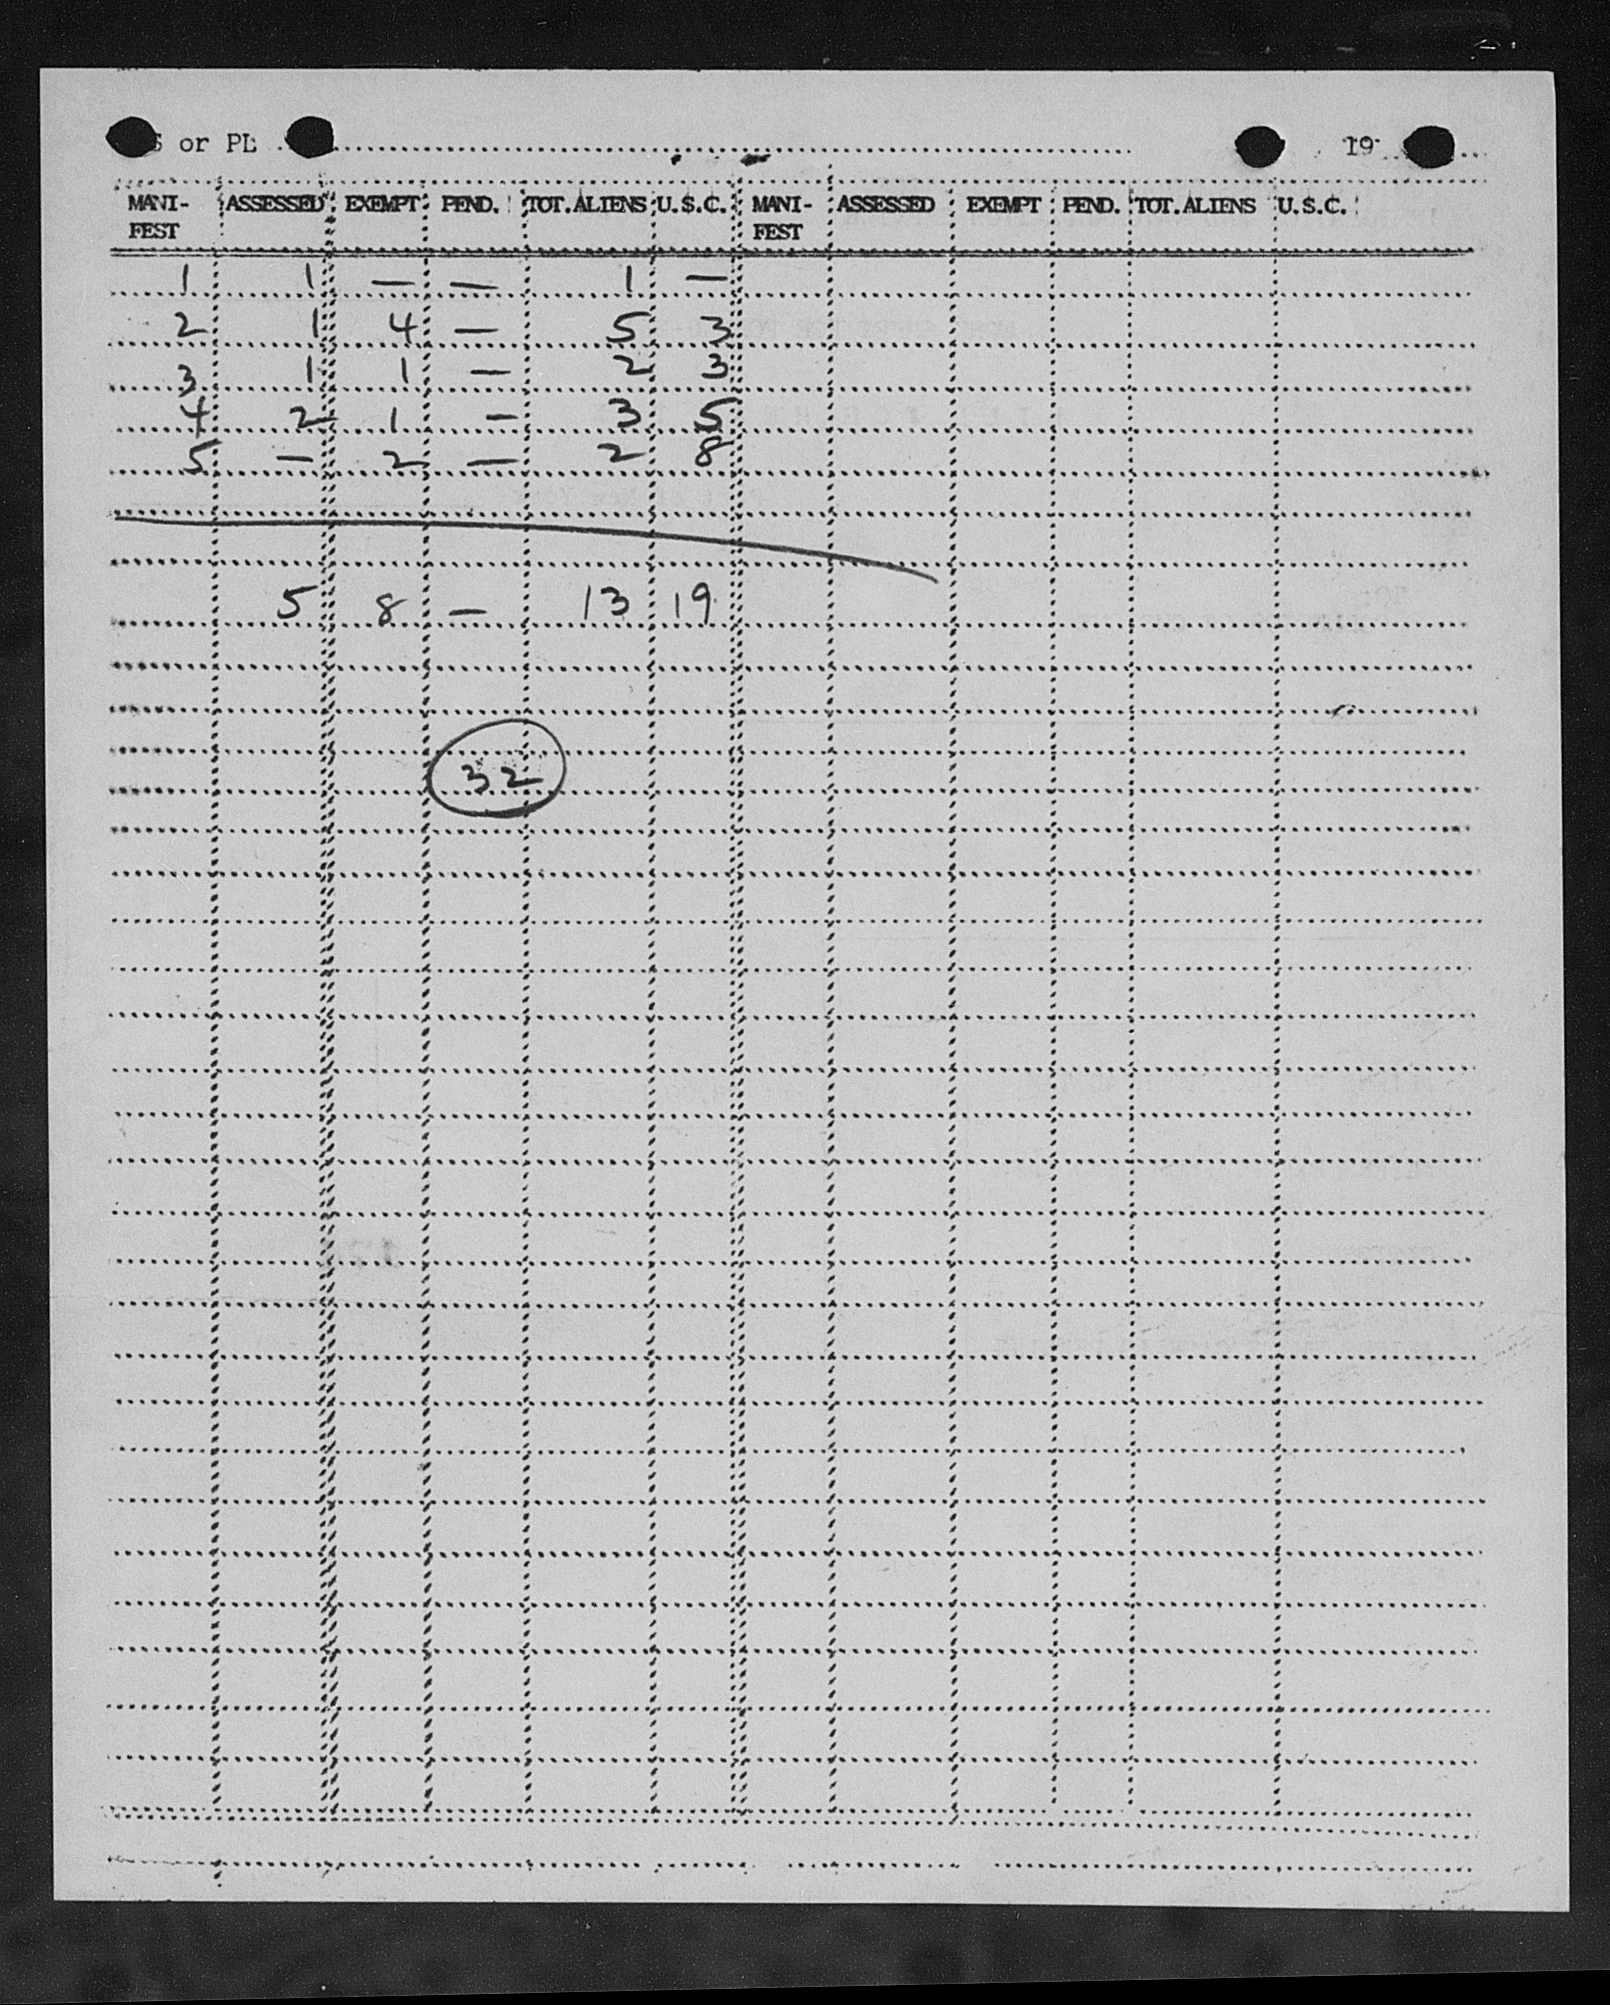 S or PL 19
MANI- ASSESSED EXEMPT PEND. TOT. ALIENS U.S.C. MANI- ASSESSED EXEMPT PEND. TOT. ALIENS U.S.C.
FEST FEST
1 1 — — 1 —
2 1 4 — 5 3
3 1 1 — 2 3
4 2 1 — 3 5
5 — 2 — 2 8
5 8 — 13 19
32